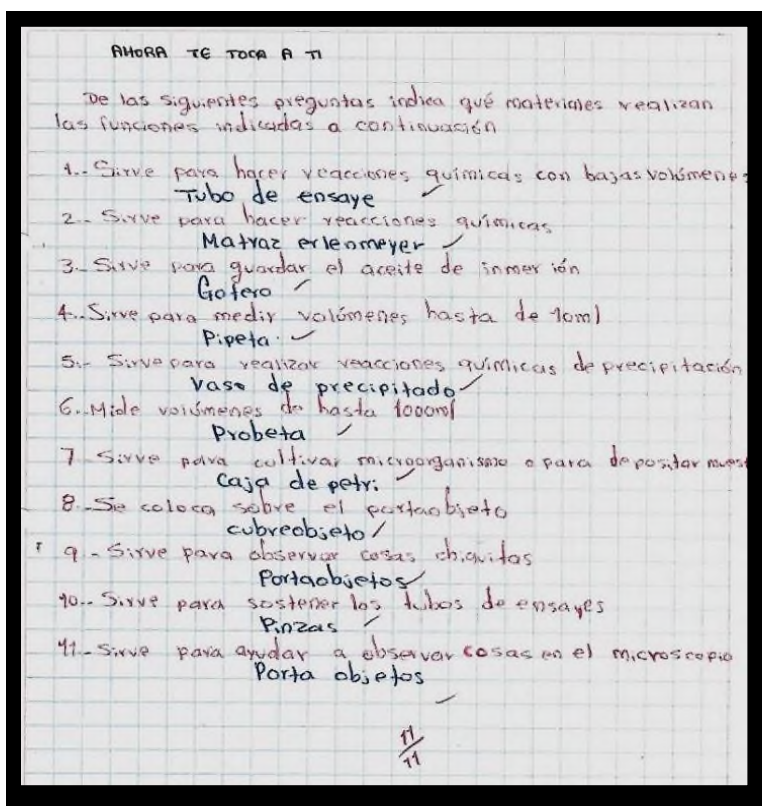 AHORA TE TOCA A TI
De las siguientes preguntas indica qué materiales realizan
las funciones indicadas a continuación
1.- Sirve para hacer reacciones químicas con bajas volúmenes
Tubo de ensaye
2.- Sirve para hacer reacciones químicas
Matraz erlenmeyer
3.- Sirve para guardar el aceite de inmer ión
Gotero
4.- Sirve para medir volúmenes hasta de 10ml
Pipeta.
5.- Sirve para realizar reacciones químicas de precipitación
Vaso de precipitado
6.- Mide volúmenes de hasta 1000ml
Probeta
7.- Sirve para cultivar microorganismo o para depositar muest
Caja de petri
8.- Se coloca sobre el portaobjeto
cubreobjeto
9.- Sirve para observar cosas chiquitas
Portaobjetos
10.- Sirve para sostener los tubos de ensayes
Pinzas
11.- Sirve para ayudar a observar cosas en el microscopio
Porta objetos
11/11